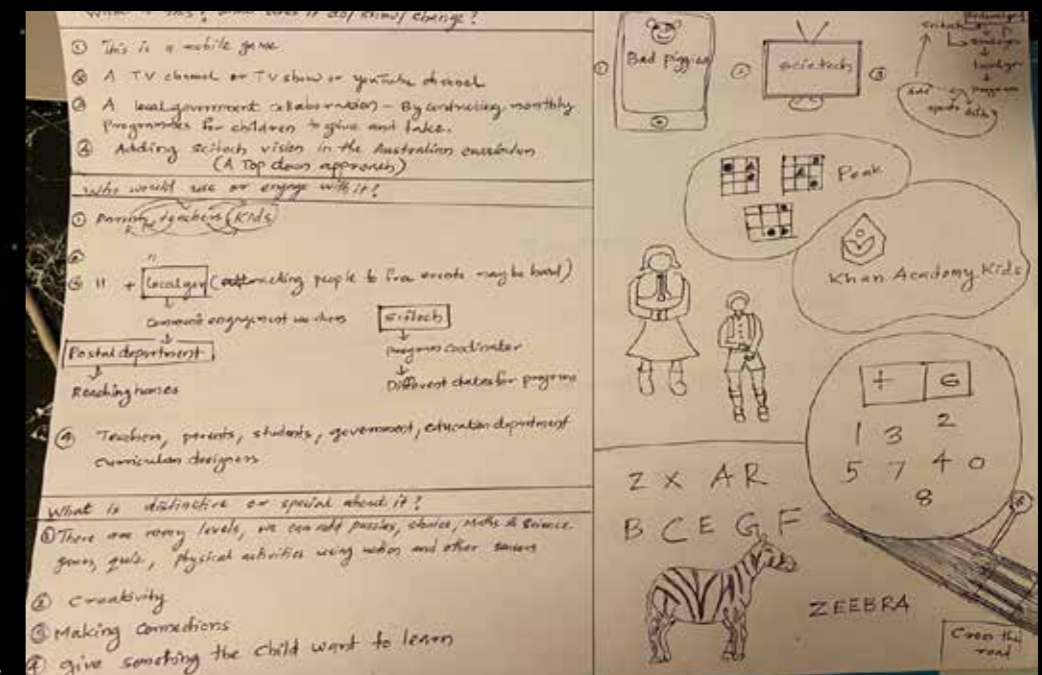 What is this? What does it do/show/change?
① This is a mobile game
② A TV channel or TV show or YouTube channel
③ A local government collaboration - By conducting monthly
Programmes for children to give and take.
④ Adding scitech vision in the Australian curriculum
(A Top down approach)
Who would use or engage with it?
① Parents, teachers, Kids
② "
③ " + Local gov (attracking people to live events may be hard)
engagement workers
Postal department
Reaching homes
Scitech
Program coodinator
Different dates for programs
④ Teachers, parents, students, government, education department
curriculum designers
What is distinctive or special about it?
① There are many levels, we can add puzzles, stories, Maths & Science
games, quiz, physical activities using motion and other sensors
② Creativity
③ Making Connections
④ give something the child want to learn
①
Bad piggies
②
scietech
③
scitech
Local gov
programs
Peak
Khan Academy Kids
+ 6
1 3 2
5 7 4 0
8
Z X A R
B C E G F
ZEEBRA
Cross the
road